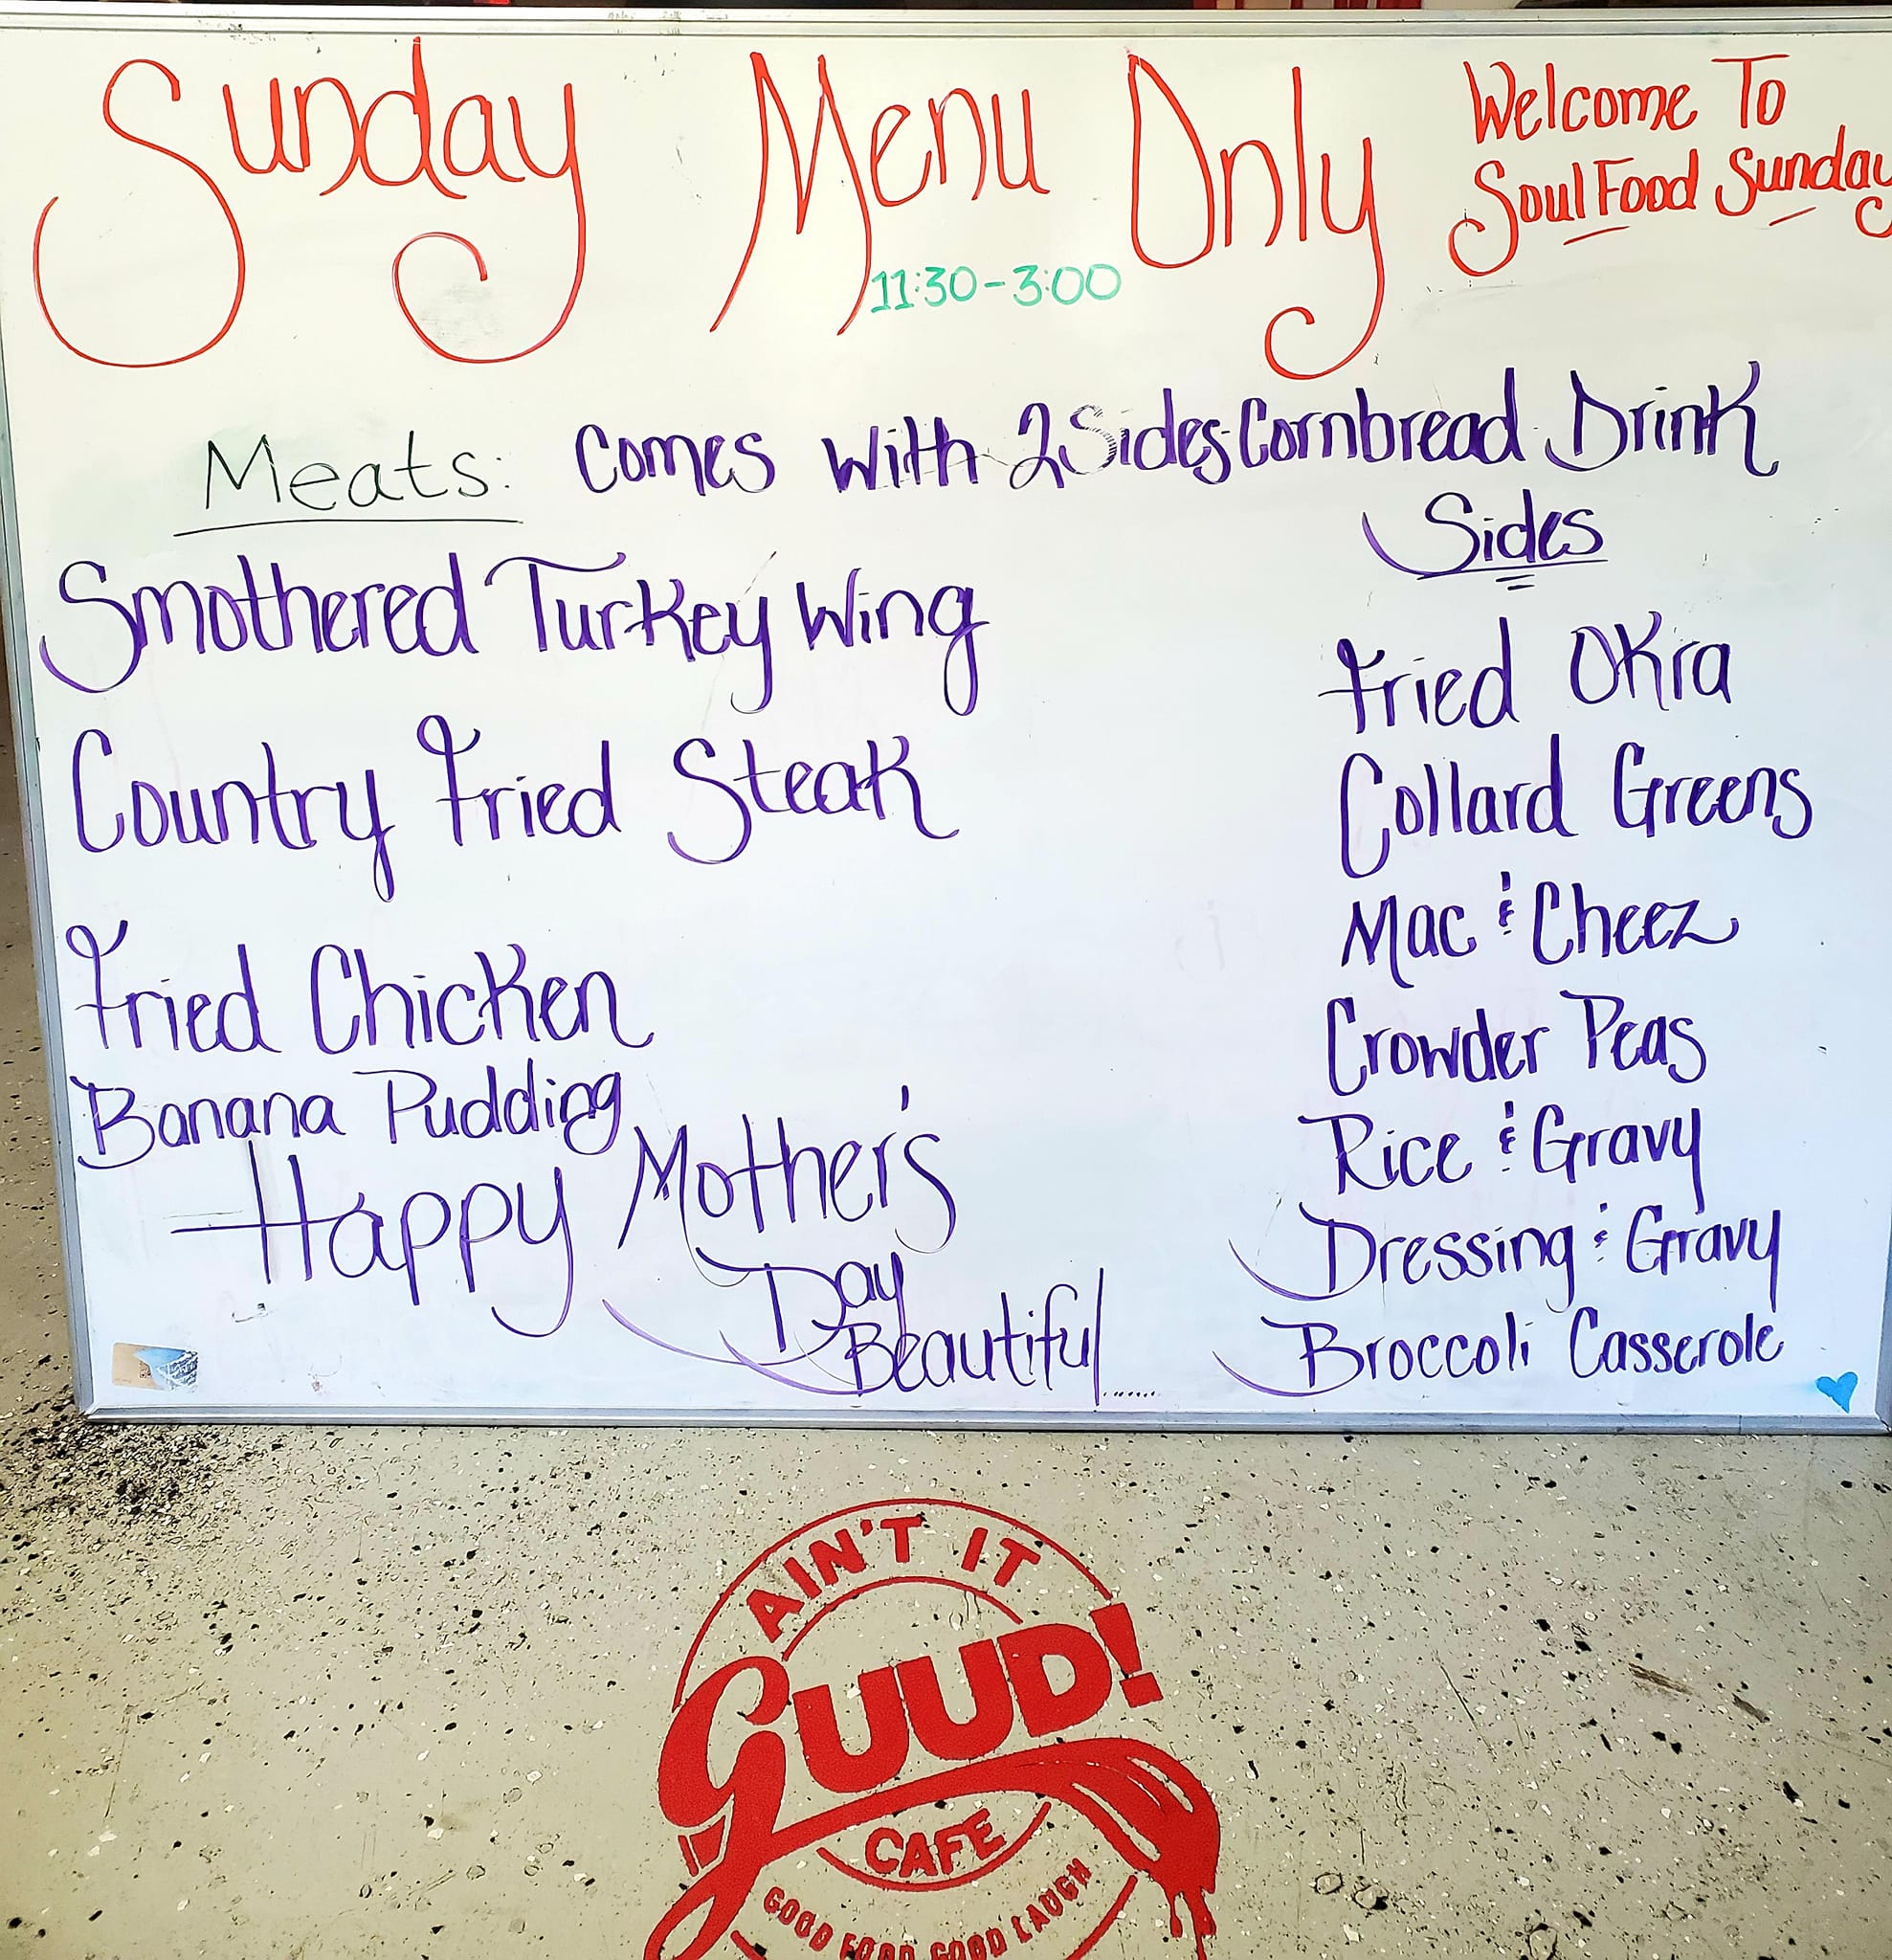 Sunday Menu Only
Welcome To
Soul Food Sunday
11:30-3:00
Meats: Comes with 2 Sides Cornbread Drink
Smothered Turkey Wing
Country Fried Steak
Fried Chicken
Banana Pudding
Happy Mother's
Day
Beautiful.......
Sides
Fried Okra
Collard Greens
Mac & Cheez
Crowder Peas
Rice & Gravy
Dressing & Gravy
Broccoli Casserole
AIN'T IT
GUUD!
CAFE
GOOD FOOD GOOD LAUGH